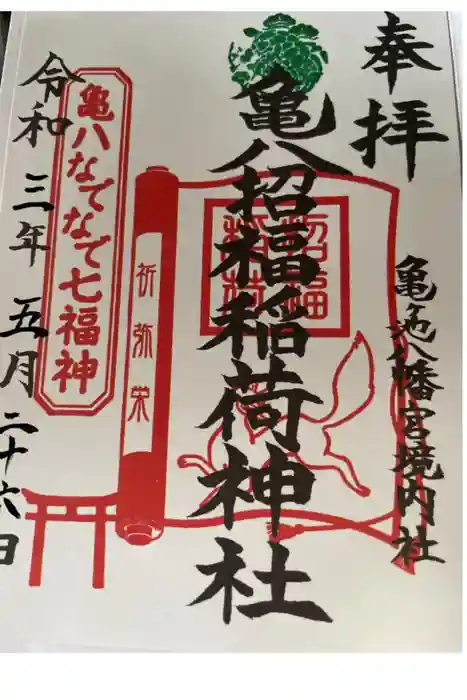 奉拝
亀池八幡宮境内社
亀八招福稲荷神社
招福
稲荷
祈弥栄
亀八なでなで七福神
令和三年五月二十六日